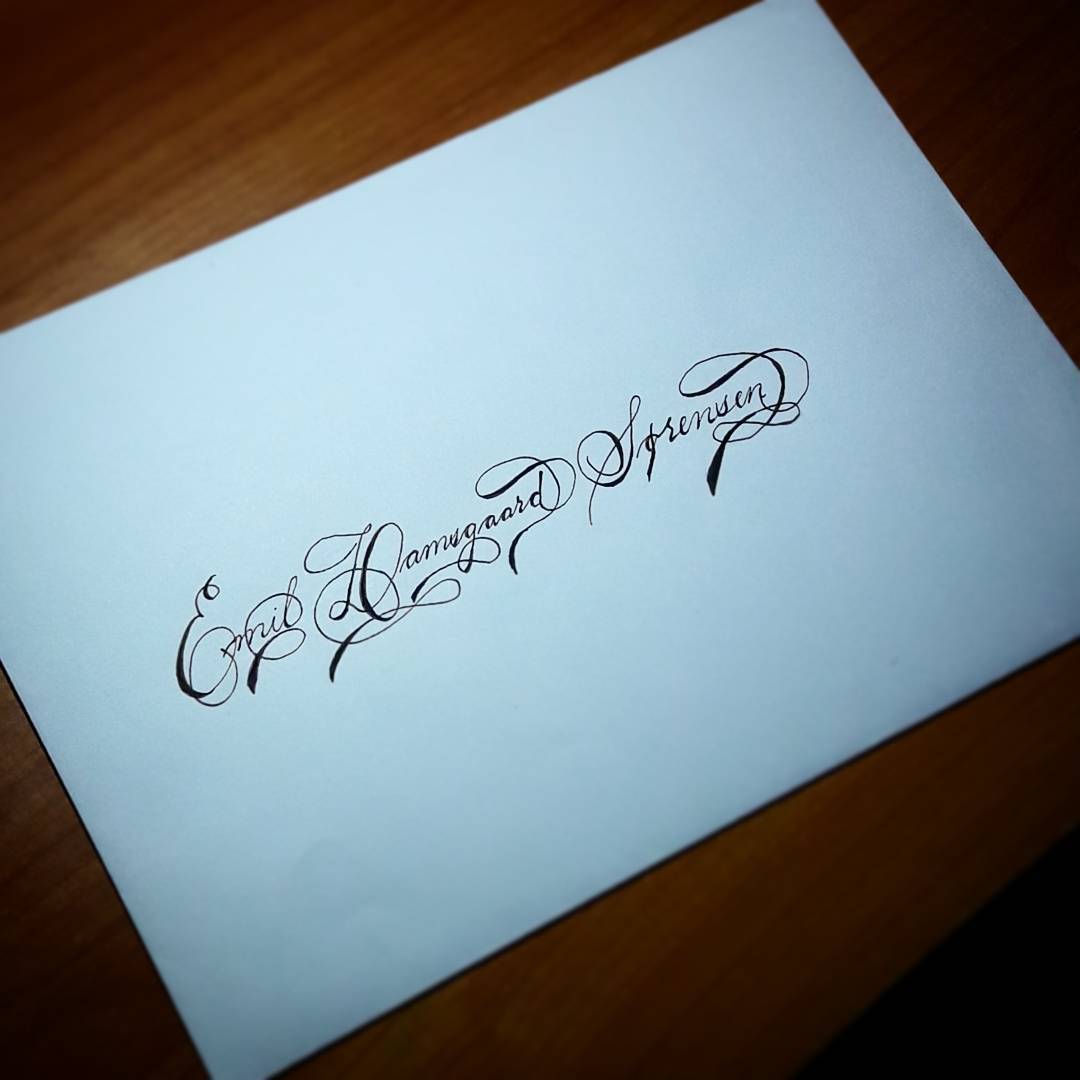 Emil Hamsgaard Sørensen